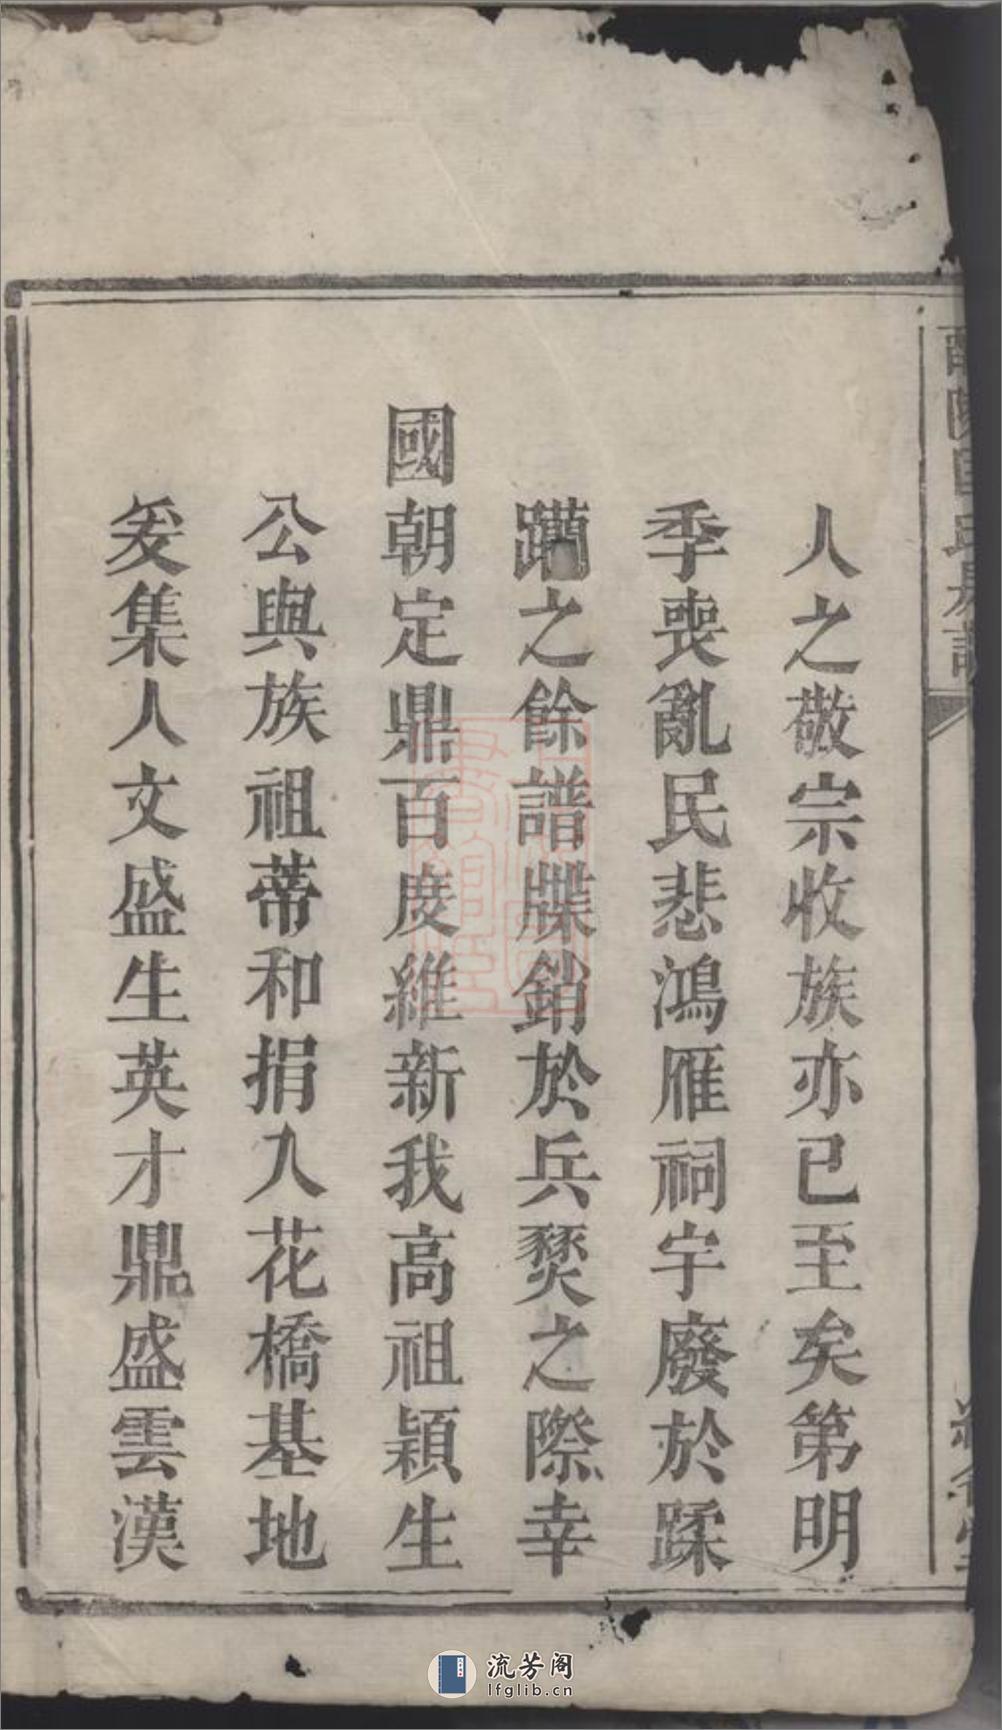 人之敬宗收族亦已至矣第明
季喪亂民悲鴻雁祠宇廢於蹂
躪之餘譜牒銷於兵燹之際幸
國朝定鼎百度維新我高祖穎生
公與族祖蒂和捐入花橋基地
爰集人文盛生英才鼎盛雲漢
流芳阁
lfglib.cn